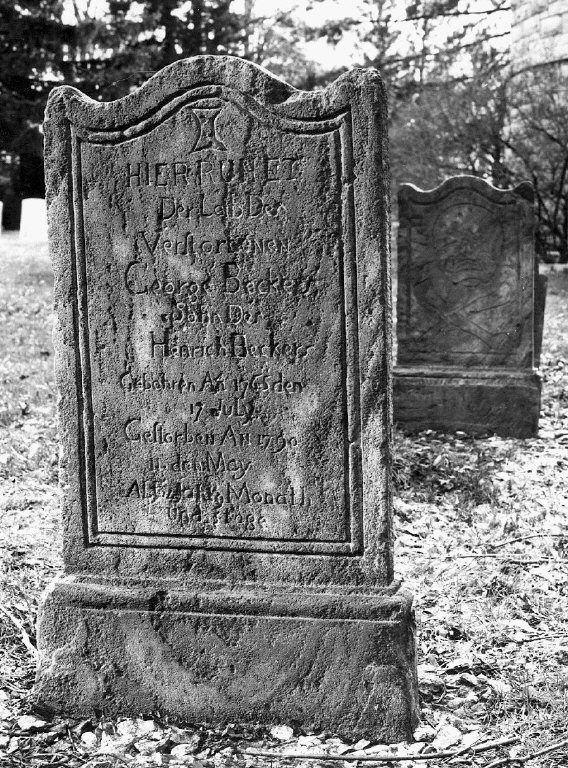 HIER RUHET
Der Leib Des
Verstorbenen
George Beckers
Sohn Des
Henrich Beckers
Gebohren An den
17 July
Gestorben An 1790
11 den May
Alt Monath
Und Tage